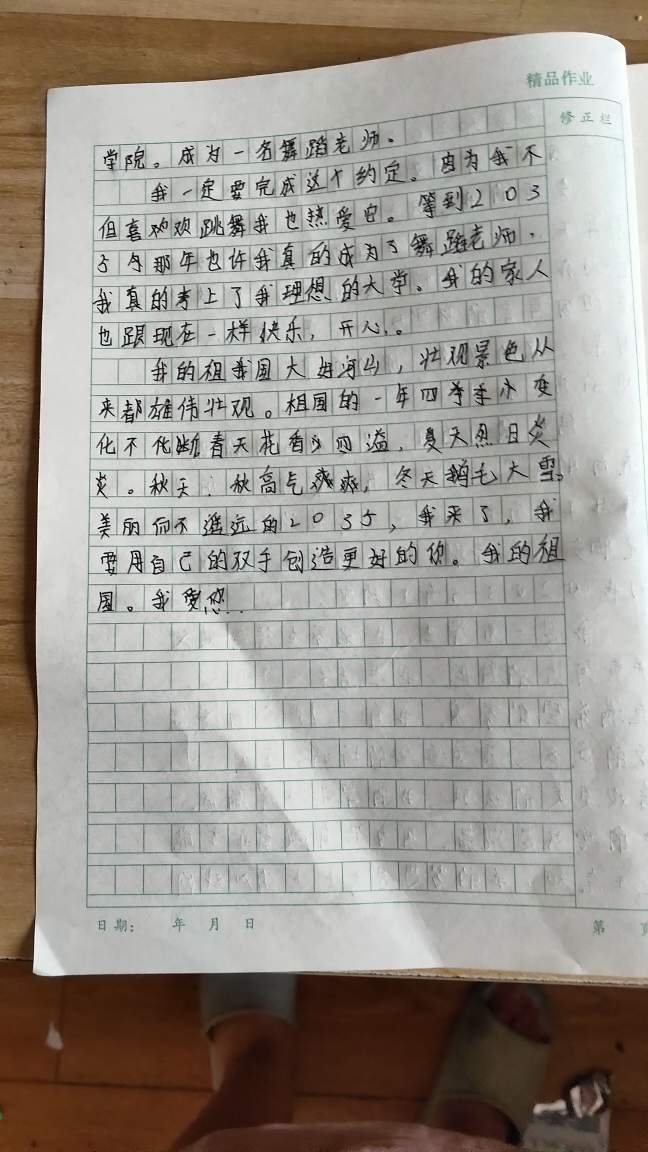 精品作业
修正栏
学院。成为一名舞蹈老师.
我一定要完成这个约定。因为我不
但喜欢跳舞我也热爱它。等到203
5年那年也许我真的成为了舞蹈老师.
我真的考上了我理想的大学、我的家人
也跟现在一样快乐，开心。
我的祖国大好河山，壮观景色从
来都雄伟壮观。祖国的一年四季季小变
化不断春天花香四溢，夏天烈日炎
炎。秋天.秋高气爽爽，冬天鹅毛大雪。
美丽而不遥远的2035，我来了，我
要用自己的双手创造更好的你。我的祖
国。我爱您..
日期： 年 月 日
第 页